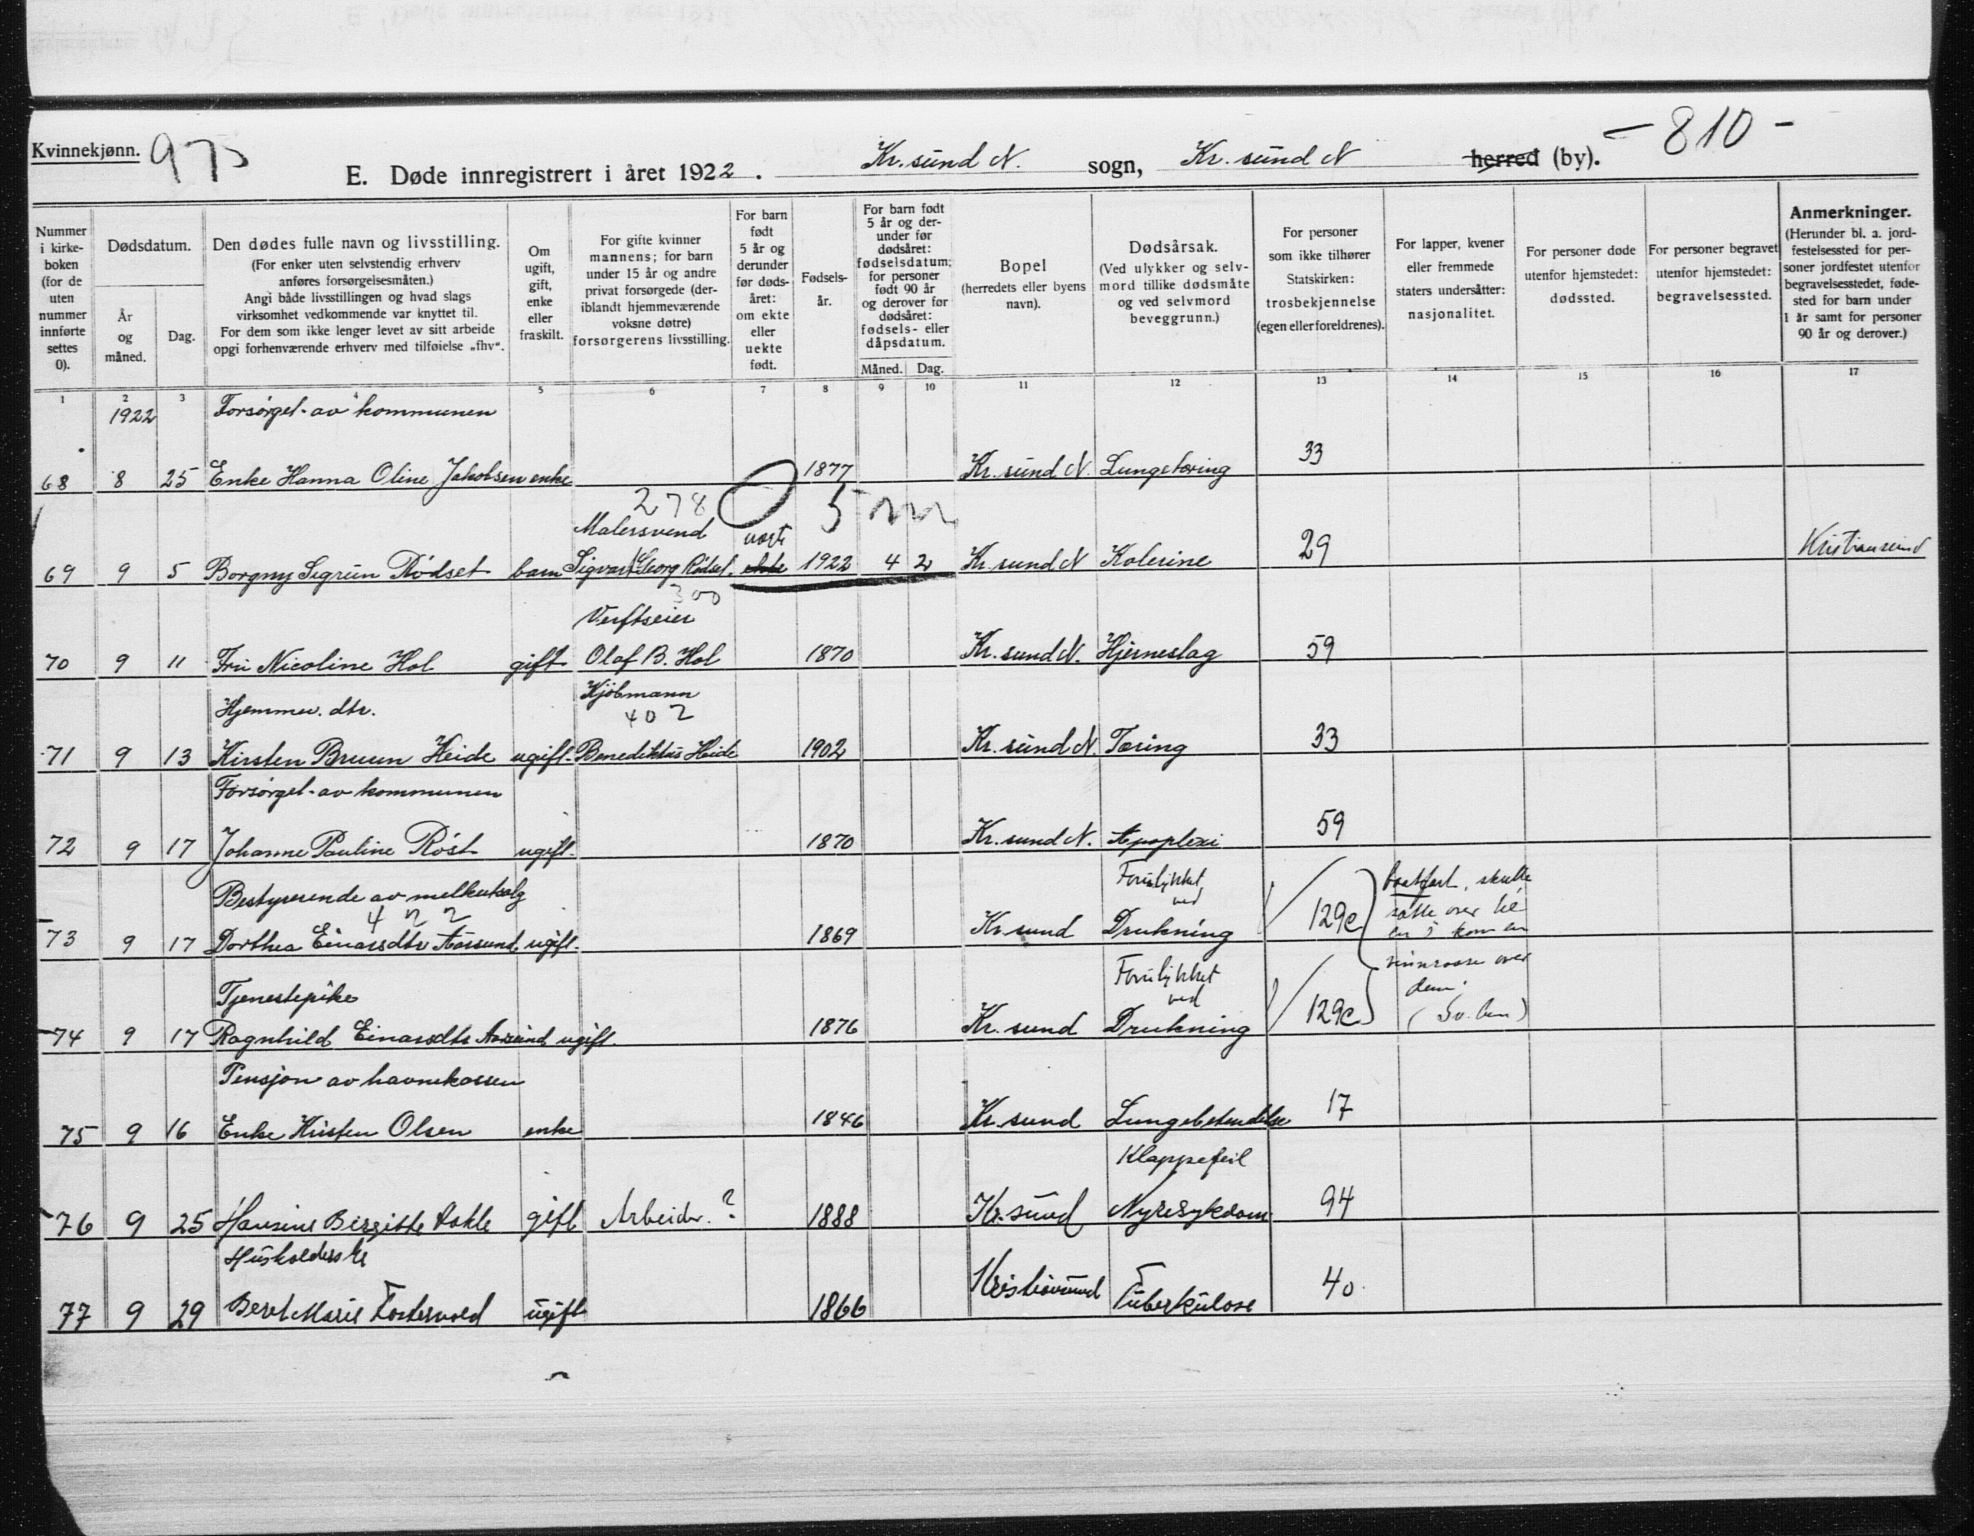 Kvinnekjønn. 975
— 810 —
E. Døde innregistrert i året 1922. Kr.sund N. sogn, Kr. sund N herred (by).
Nummer i kirkeboken (for de uten nummer innførte settes 0).
Dødsdatum.
År og måned.
Dag.
Den dødes fulle navn og livsstilling.
(For enker uten selvstendig erhverv anføres forsørgelsesmåten.)
Angi både livsstillingen og hvad slags virksomhet vedkommende var knyttet til.
For dem som ikke lenger levet av sitt arbeide opgi forhenværende erhverv med tilføielse „fhv“.
Om ugift, gift, enke eller fraskilt.
For gifte kvinner mannens; for barn under 15 år og andre privat forsørgede (deriblandt hjemmeværende voksne døtre) forsørgerens livsstilling.
For barn født 5 år og derunder før dødsåret: om ekte eller uekte født.
Fødselsår.
For barn født 5 år og derunder før dødsåret: fødselsdatum; for personer født 90 år og derover før dødsåret: fødsels- eller dåpsdatum.
Måned. Dag.
Bopel
(herredets eller byens navn).
Dødsårsak.
(Ved ulykker og selvmord tillike dødsmåte og ved selvmord beveggrunn.)
For personer som ikke tilhører Statskirken: trosbekjennelse (egen eller foreldrenes).
For lapper, kvener eller fremmede staters undersåtter: nasjonalitet.
For personer døde utenfor hjemstedet: dødssted.
For personer begravet utenfor hjemstedet: begravelsessted.
Anmerkninger.
(Herunder bl. a. jordfestelsessted for personer jordfestet utenfor begravelsesstedet, fødested for barn under 1 år samt for personer 90 år og derover.)
1 2 3 4 5 6 7 8 9 10 11 12 13 14 15 16 17
1922 Forsørget av kommunen
68 8 25 Enke Hanna Oline Jakobsen enke 1877 Kr. sund N. Lungetæring 33
278 5
Malersvend uægte
69 9 5 Borgny Sigrun Rødset barn Sigvart Georg Rødset. ekte 1922 4 2 Kr. sund N Kolerine 29 Kristiansund
300
Verftseier
70 9 11 Fru Nicoline Hol gift Olaf B. Hol 1870 Kr. sund N. Hjerneslag 59
Hjemmev. dtr. Kjøbmann
402
71 9 13 Kirsten Bruun Heide ugift. Benediktus Heide 1902 Kr. sund N. Tæring 33
Forsørget av kommunen
72 9 17 Johanne Pauline Röst ugift. 1870 Kr. sund N. Apoplexi 59
Bestyrerende av melkeutsalg Forulykket ved
422
73 9 17 Dorthea Einarsdtr Aarsund. ugift. 1869 Kr. sund Drukning 129e
baatfart, skulle
over
en kom en
over
dem.
Tjenestepike Forulykket ved
74 9 17 Ragnhild Einarsdtr Aarsund ugift. 1876 Kr. sund Drukning 129e
Pensjon av havnekassen
75 9 16 Enke Kristen Olsen enke 1846 Kr. sund Lungebetendelse 17
Klappefeil
76 9 25 Hansine Birgitte gift Arbeider. ? 1888 Kr. sund Nyresykdom 94
Husholderske
77 9 29 Beret Marie Fostervold ugift 1866 Kristiansund Tuberkulose 40